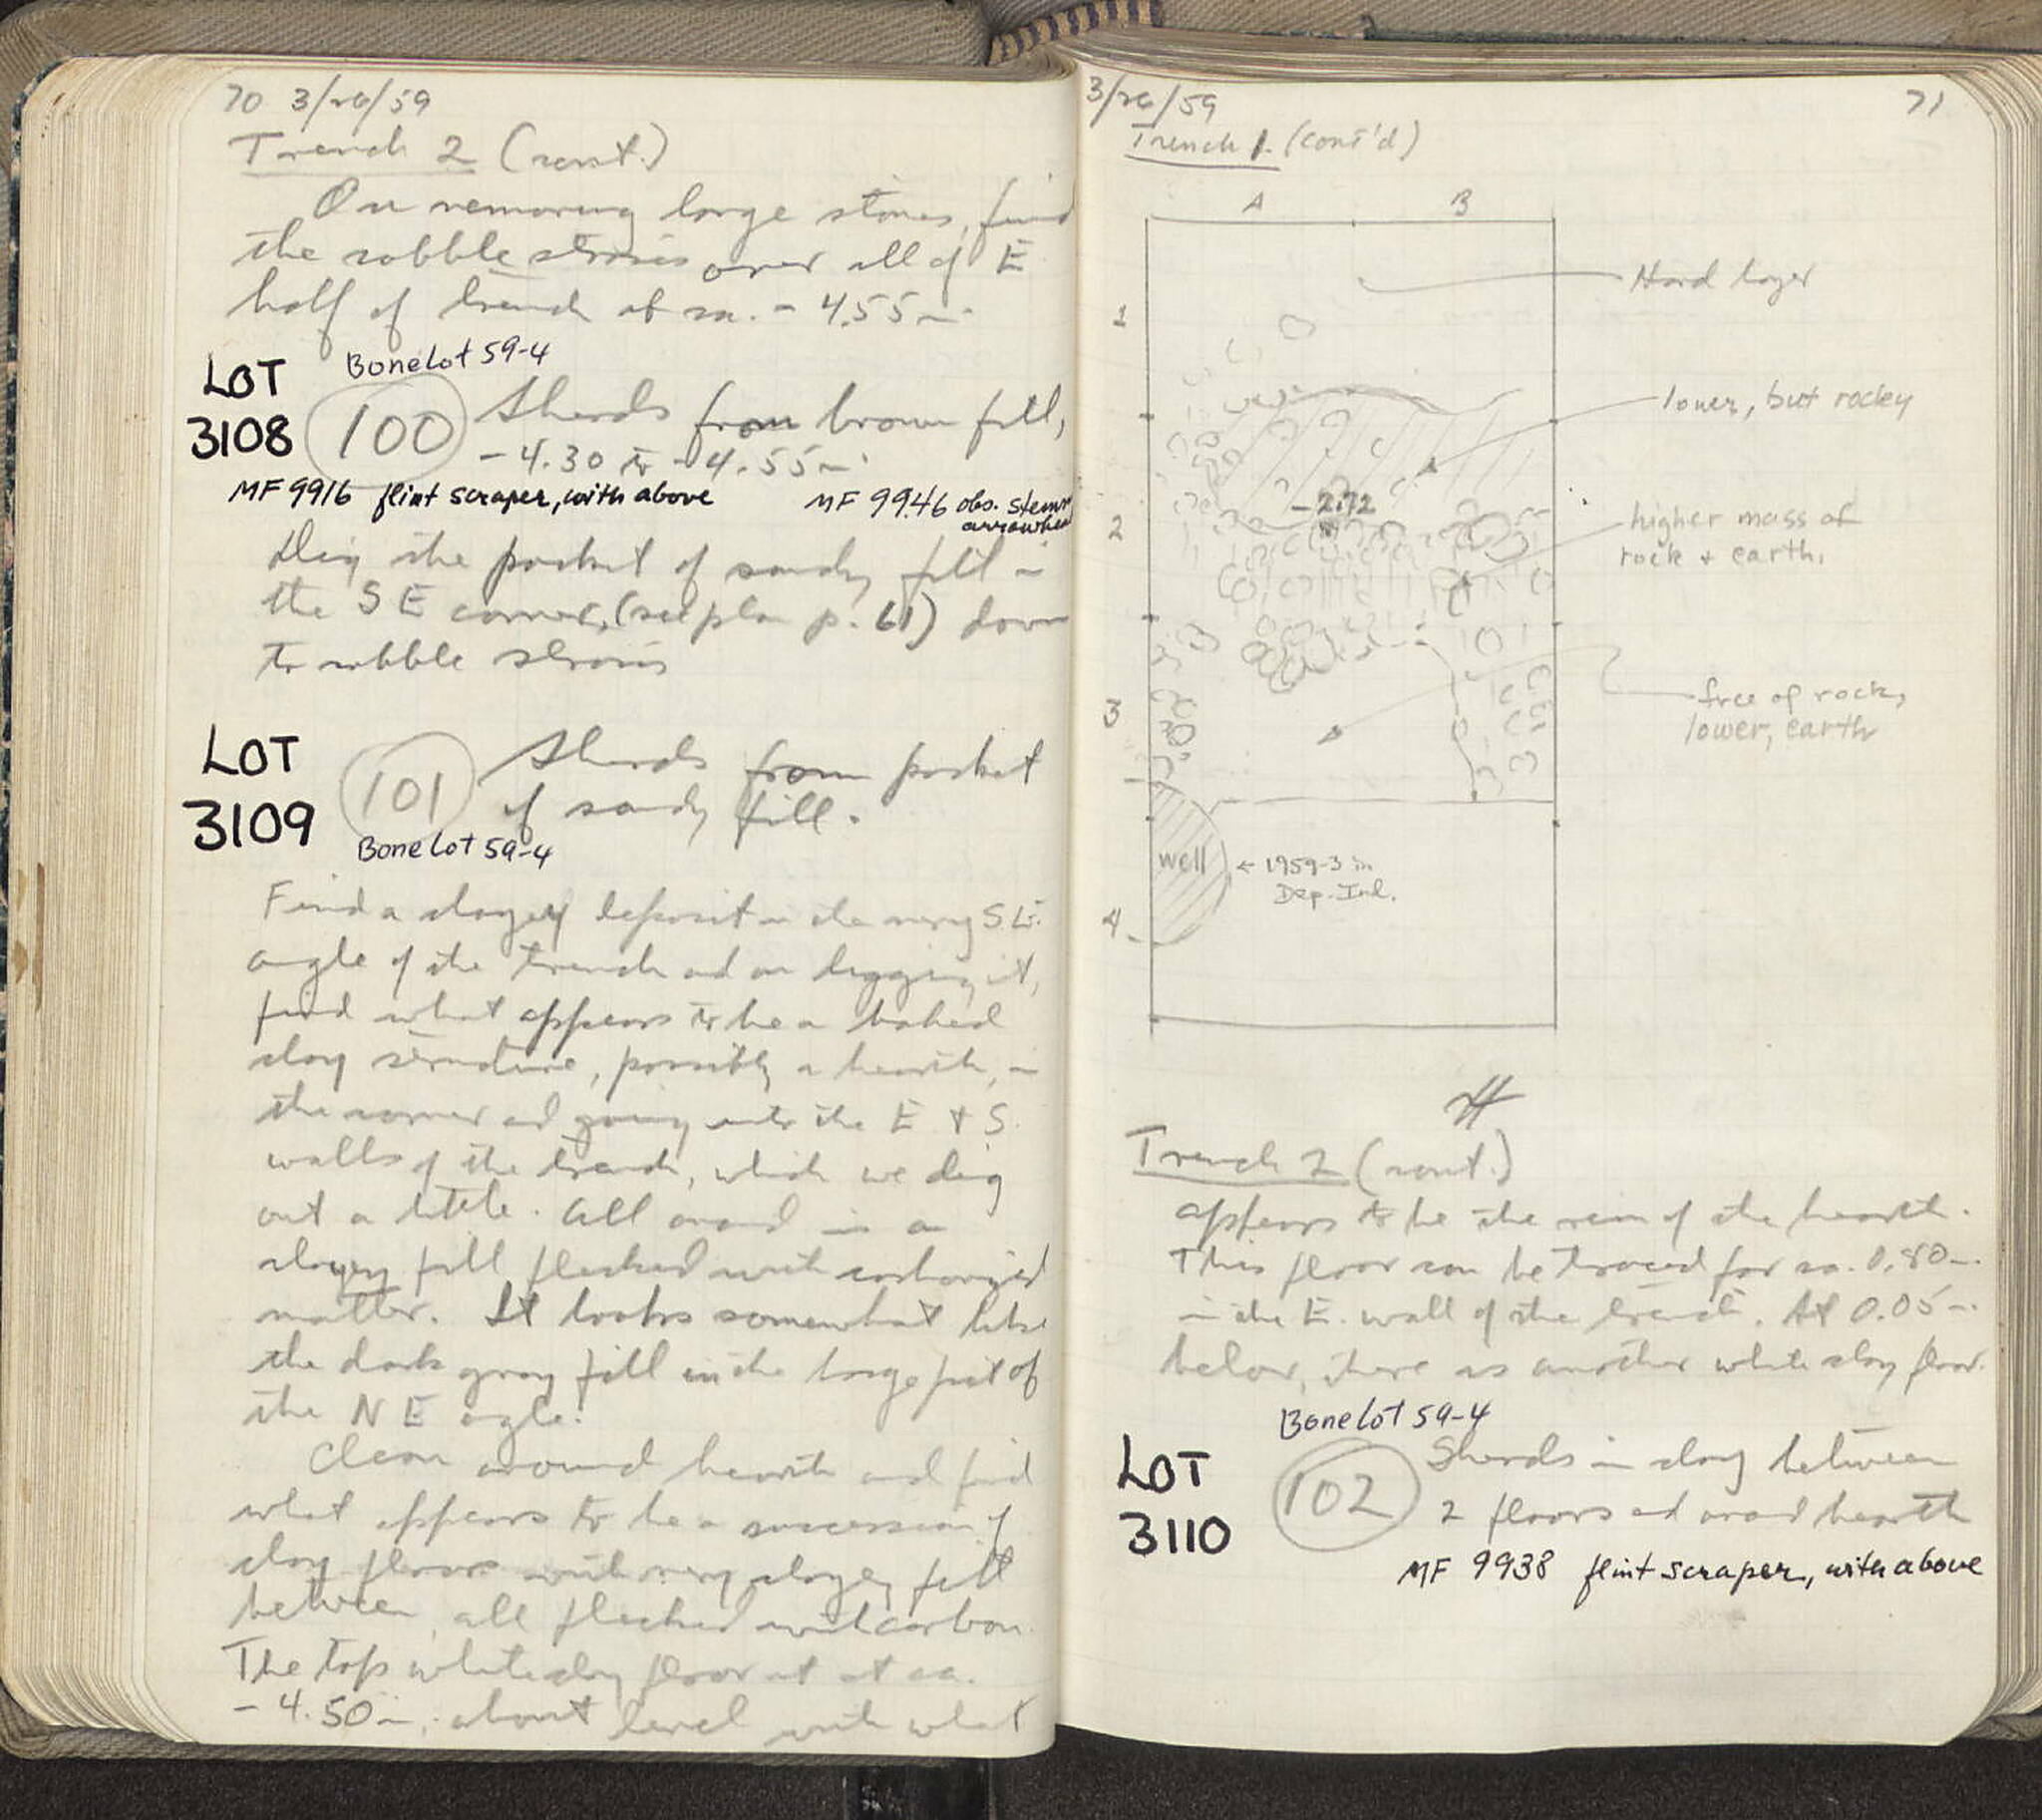 70 3/26/59
Trench 2 (cont.)
On removing large stones, find
the rubble stroses over all of E
half of trench at ca. - 4.55 m.
Bone Lot 59-4
LOT
3108
100 Sherds from brown fill,
- 4.30 to - 4.55 m.
MF 9916 flint scraper, with above
MF 9946 obs. stemm
arrowhea
Dig the pocket of sandy fill in
the SE corner, (see plan p. 61) down
to rubble
LOT
3109
101 Sherds from pocket
of sandy fill.
Bone Lot 59-4
Find a clayey deposit in the very SE.
angle of the trench and on digging it,
find what appears to be a baked
clay structure, possibly a hearth, in
the corner and going into the E + S.
walls of the trench, which we dig
out a little. All around is a
clayey fill flecked with carbonized
matter. It looks somewhat like
the dark gray fill in the large pit of
the NE angle.
Clean around hearth and find
what appears to be a succession of
clay floors with very clayey fill
between, all flecked with carbon.
The top white clay floor at at ca.
- 4.50 m., about level with what
3/26/59
71
Trench 1. (cont'd)
A B
Hard layer
1
lower, but rocky
-2.72
higher mass of
rock + earth.
2
free of rock,
lower, earth
3
well ← 1959-3 in
Dep. Ind.
4
Trench 2 (cont.)
appears to be the rim of the hearth.
This floor can be traced for ca. 0.80 m.
in the E. wall of the trench. At 0.05 m.
below, there is another white clay floor.
Bone Lot 59-4
LOT
3110
102 Sherds in clay between
2 floors and around hearth
MF 9938 flint scraper, with above